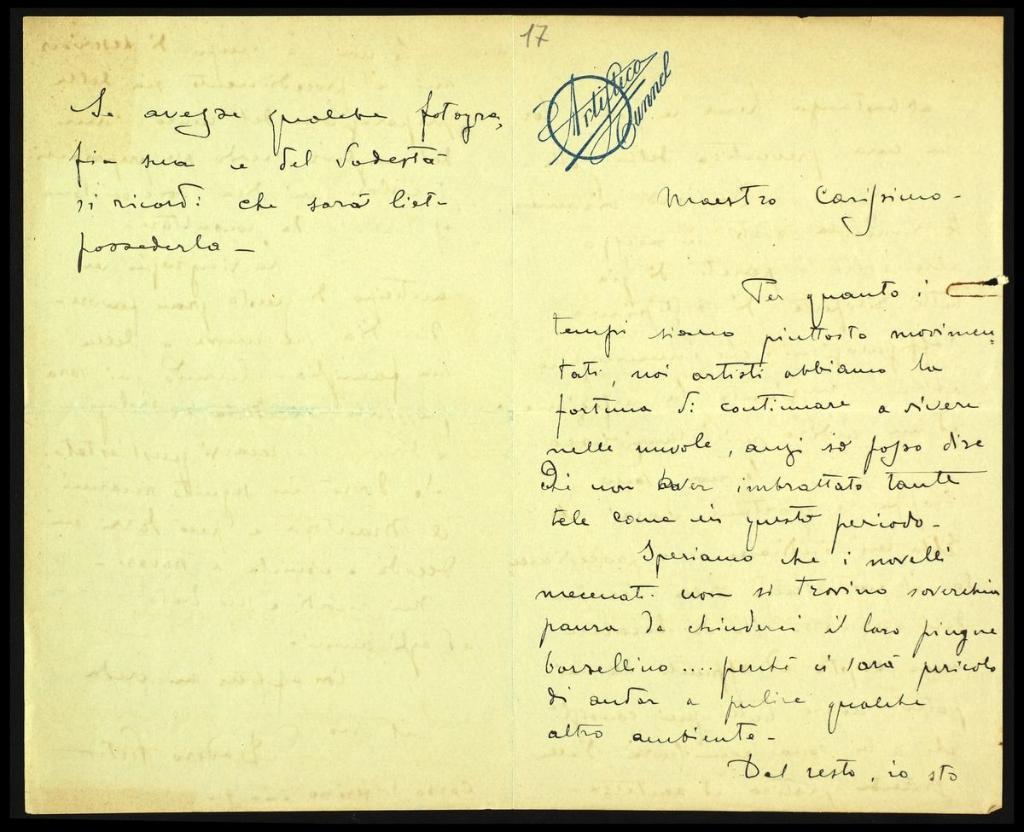 Se avesse qualche fotogra,
fia sua e del Podestà
si ricordi che sarò liet-
possederla -
17
Artistico
Tunnel
Maestro Carissimo -
Per quanto i
tempi siano piuttosto movimen,
tati, noi artisti abbiamo la
fortuna di continuare a vivere
nelle nuvole, anzi io posso dire
Di non aver imbrattato tante
tele come in questo periodo -
Speriamo che i novelli
mecenati non si trovino soverchia
paura da chiuderci il loro pingue
borsellino .... perché ci sarà pericolo
di andar a pulire qualche
altro ambiente -
Del resto, io sto